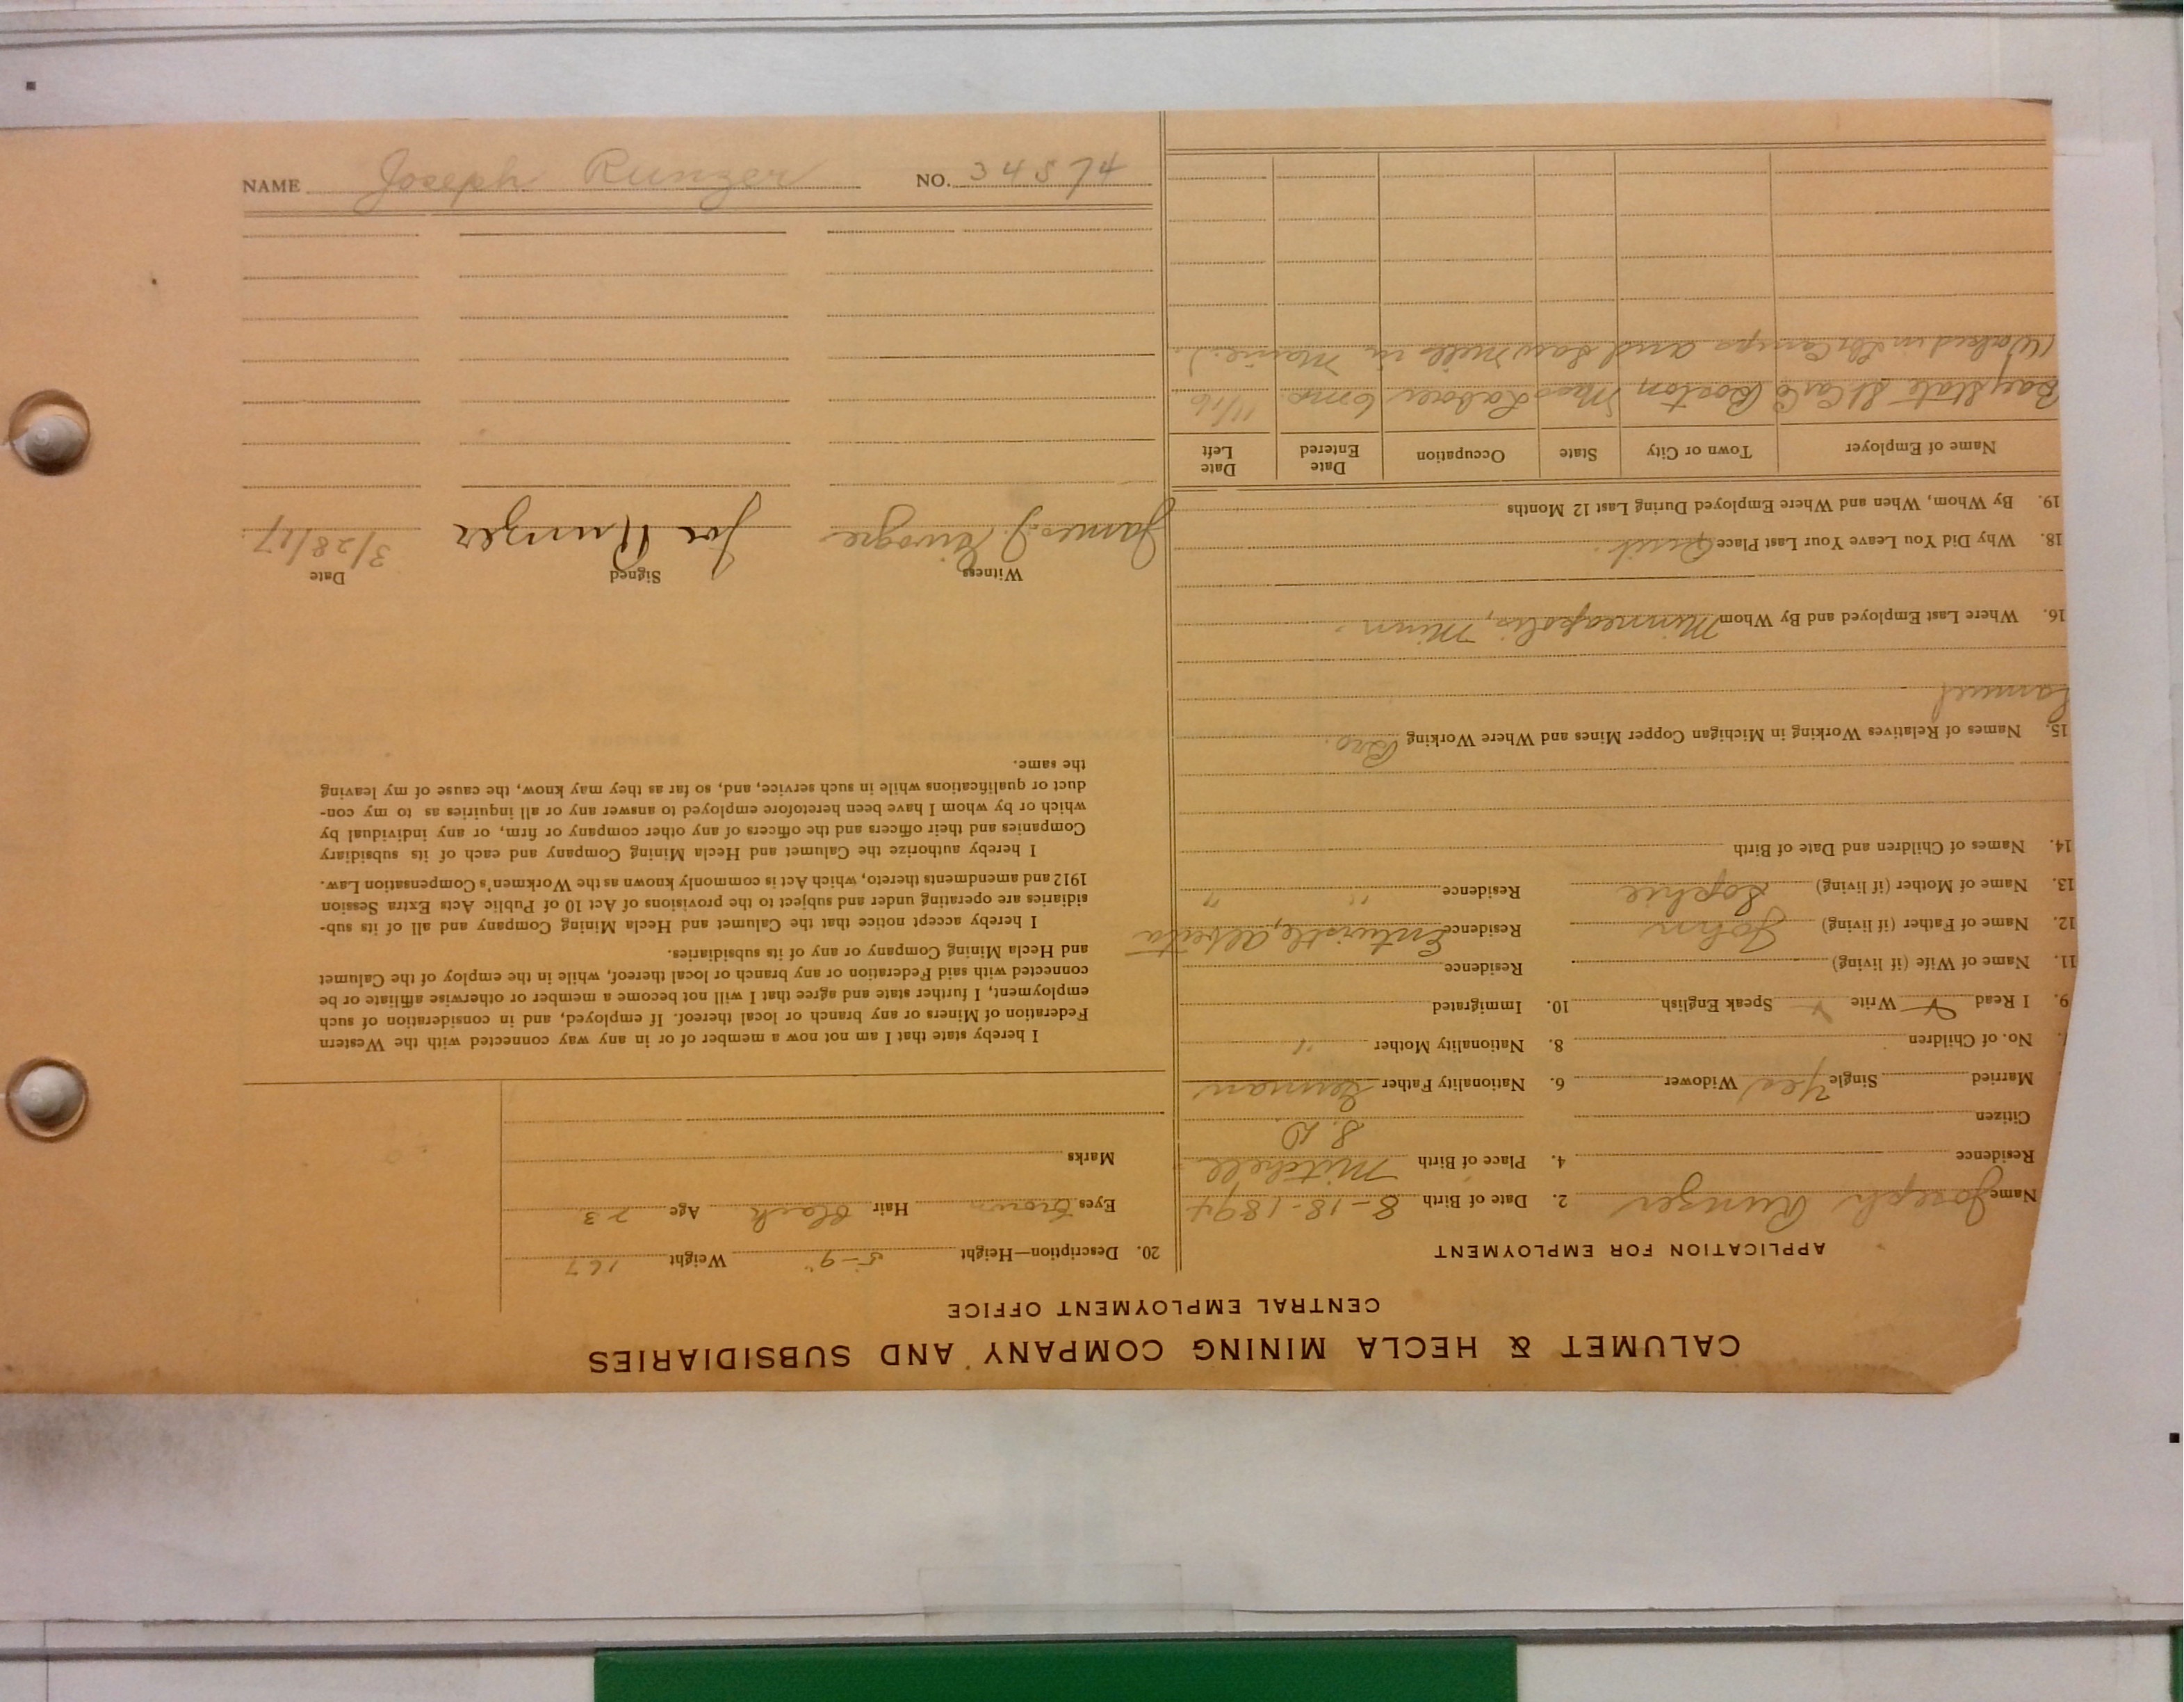 CALUMET & HECLA MINING COMPANY AND SUBSIDIARIES
CENTRAL EMPLOYMENT OFFICE
APPLICATION FOR EMPLOYMENT
Name Joseph Runzer 2. Date of Birth 8-18-1894
Residence 4. Place of Birth Mitchell
S.D
Citizen
Married Single Yes Widower 6. Nationality Father German
No. of Children 8. Nationality Mother "
9. I Read Write Speak English 10. Immigrated
11. Name of Wife (if living) Residence
12. Name of Father (if living) John Residence Entwistle, Alberta
13. Name of Mother (if living) Sophie Residence " "
14. Names of Children and Date of Birth
15. Names of Relatives Working in Michigan Copper Mines and Where Working Bro.
Samuel
16. Where Last Employed and By Whom Minneapolis, Minn.
18. Why Did You Leave Your Last Place Quit.
19. By Whom, When and Where Employed During Last 12 Months
Name of Employer Town or City State Occupation Date Entered Date Left
Bay State St Car Co Boston, Mass Laborer 6 mo. 11/16
(Worked in Camps and Saw Mills in Maine.)
20. Description—Height 5-9" Weight 167
Eyes Brown Hair Black Age 23
Marks
I hereby state that I am not now a member of or in any way connected with the Western
Federation of Miners or any branch or local thereof. If employed, and in consideration of such
employment, I further state and agree that I will not become a member or otherwise affiliate or be
connected with said Federation or any branch or local thereof, while in the employ of the Calumet
and Hecla Mining Company or any of its subsidiaries.
I hereby accept notice that the Calumet and Hecla Mining Company and all of its sub-
sidiaries are operating under and subject to the provisions of Act 10 of Public Acts Extra Session
1912 and amendments thereto, which Act is commonly known as the Workmen's Compensation Law.
I hereby authorize the Calumet and Hecla Mining Company and each of its subsidiary
Companies and their officers and the officers of any other company or firm, or any individual by
which or by whom I have been heretofore employed to answer any or all inquiries as to my con-
duct or qualifications while in such service, and, so far as they may know, the cause of my leaving
the same.
Witness Signed Date
James J. Joe Runzer 3/28/17
NAME Joseph Runzer NO. 34574